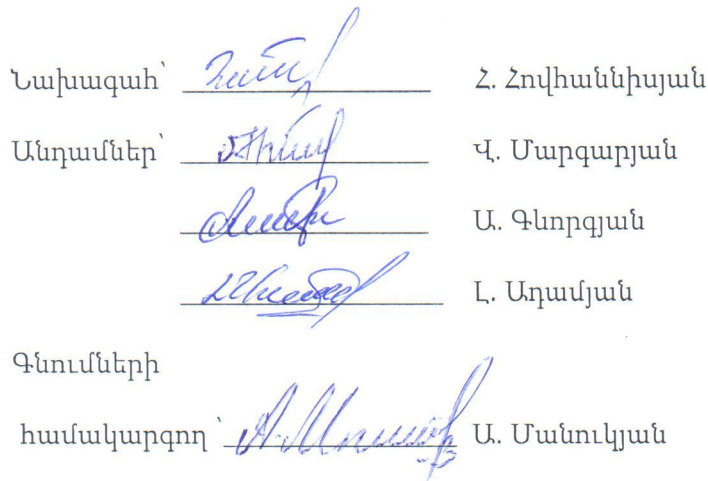 Նախագահ՝ Հ. Հովհաննիսյան
Անդամներ՝ Վ. Մարգարյան
Ա. Գևորգյան
Լ. Ադամյան
Գնումների
համակարգող ՝ Ա. Մանուկյան